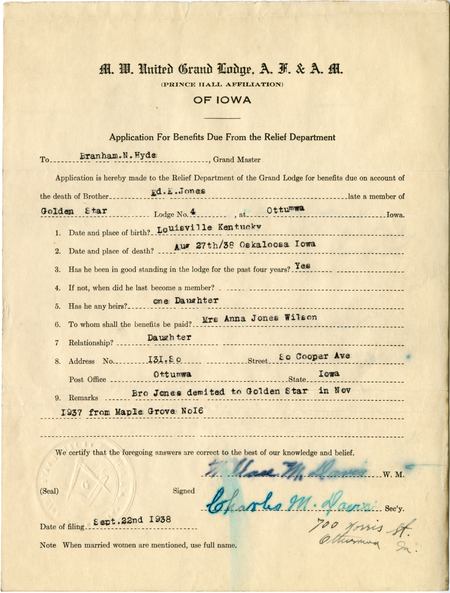 M. W. United Grand Lodge, A. F. & A. M.
(PRINCE HALL AFFILIATION)
OF IOWA
Application For Benefits Due From the Relief Department
To Branham.N.Hyde, Grand Master
Application is hereby made to the Relief Department of the Grand Lodge for benefits due on account of
the death of Brother Ed.E.Jones late a member of
Golden Star Lodge No. 4, at Ottumwa Iowa.
1. Date and place of birth? Louisville Kentucky
2. Date and place of death? Aug 27th/38 Oskaloosa Iowa
3. Has he been in good standing in the lodge for the past four years? Yes
4. If not, when did he last become a member?
5. Has he any heirs? one Daughter
6. To whom shall the benefits be paid? Mrs Anna Jones Wilson
7 Relationship? Daughter
8. Address No. I3I.So Street So Cooper Ave
Post Office Ottumwa State Iowa
9. Remarks Bro Jones demited to Golden Star in Nov
1937 from Maple Grove No16
We certify that the foregoing answers are correct to the best of our knowledge and belief.
Wallace M. Davis W. M.
(Seal) Signed
Charles M. Davis Sec'y.
Date of filing Sept.22nd 1938
700 Norris St.
Ottumwa Ia.
Note When married women are mentioned, use full name.